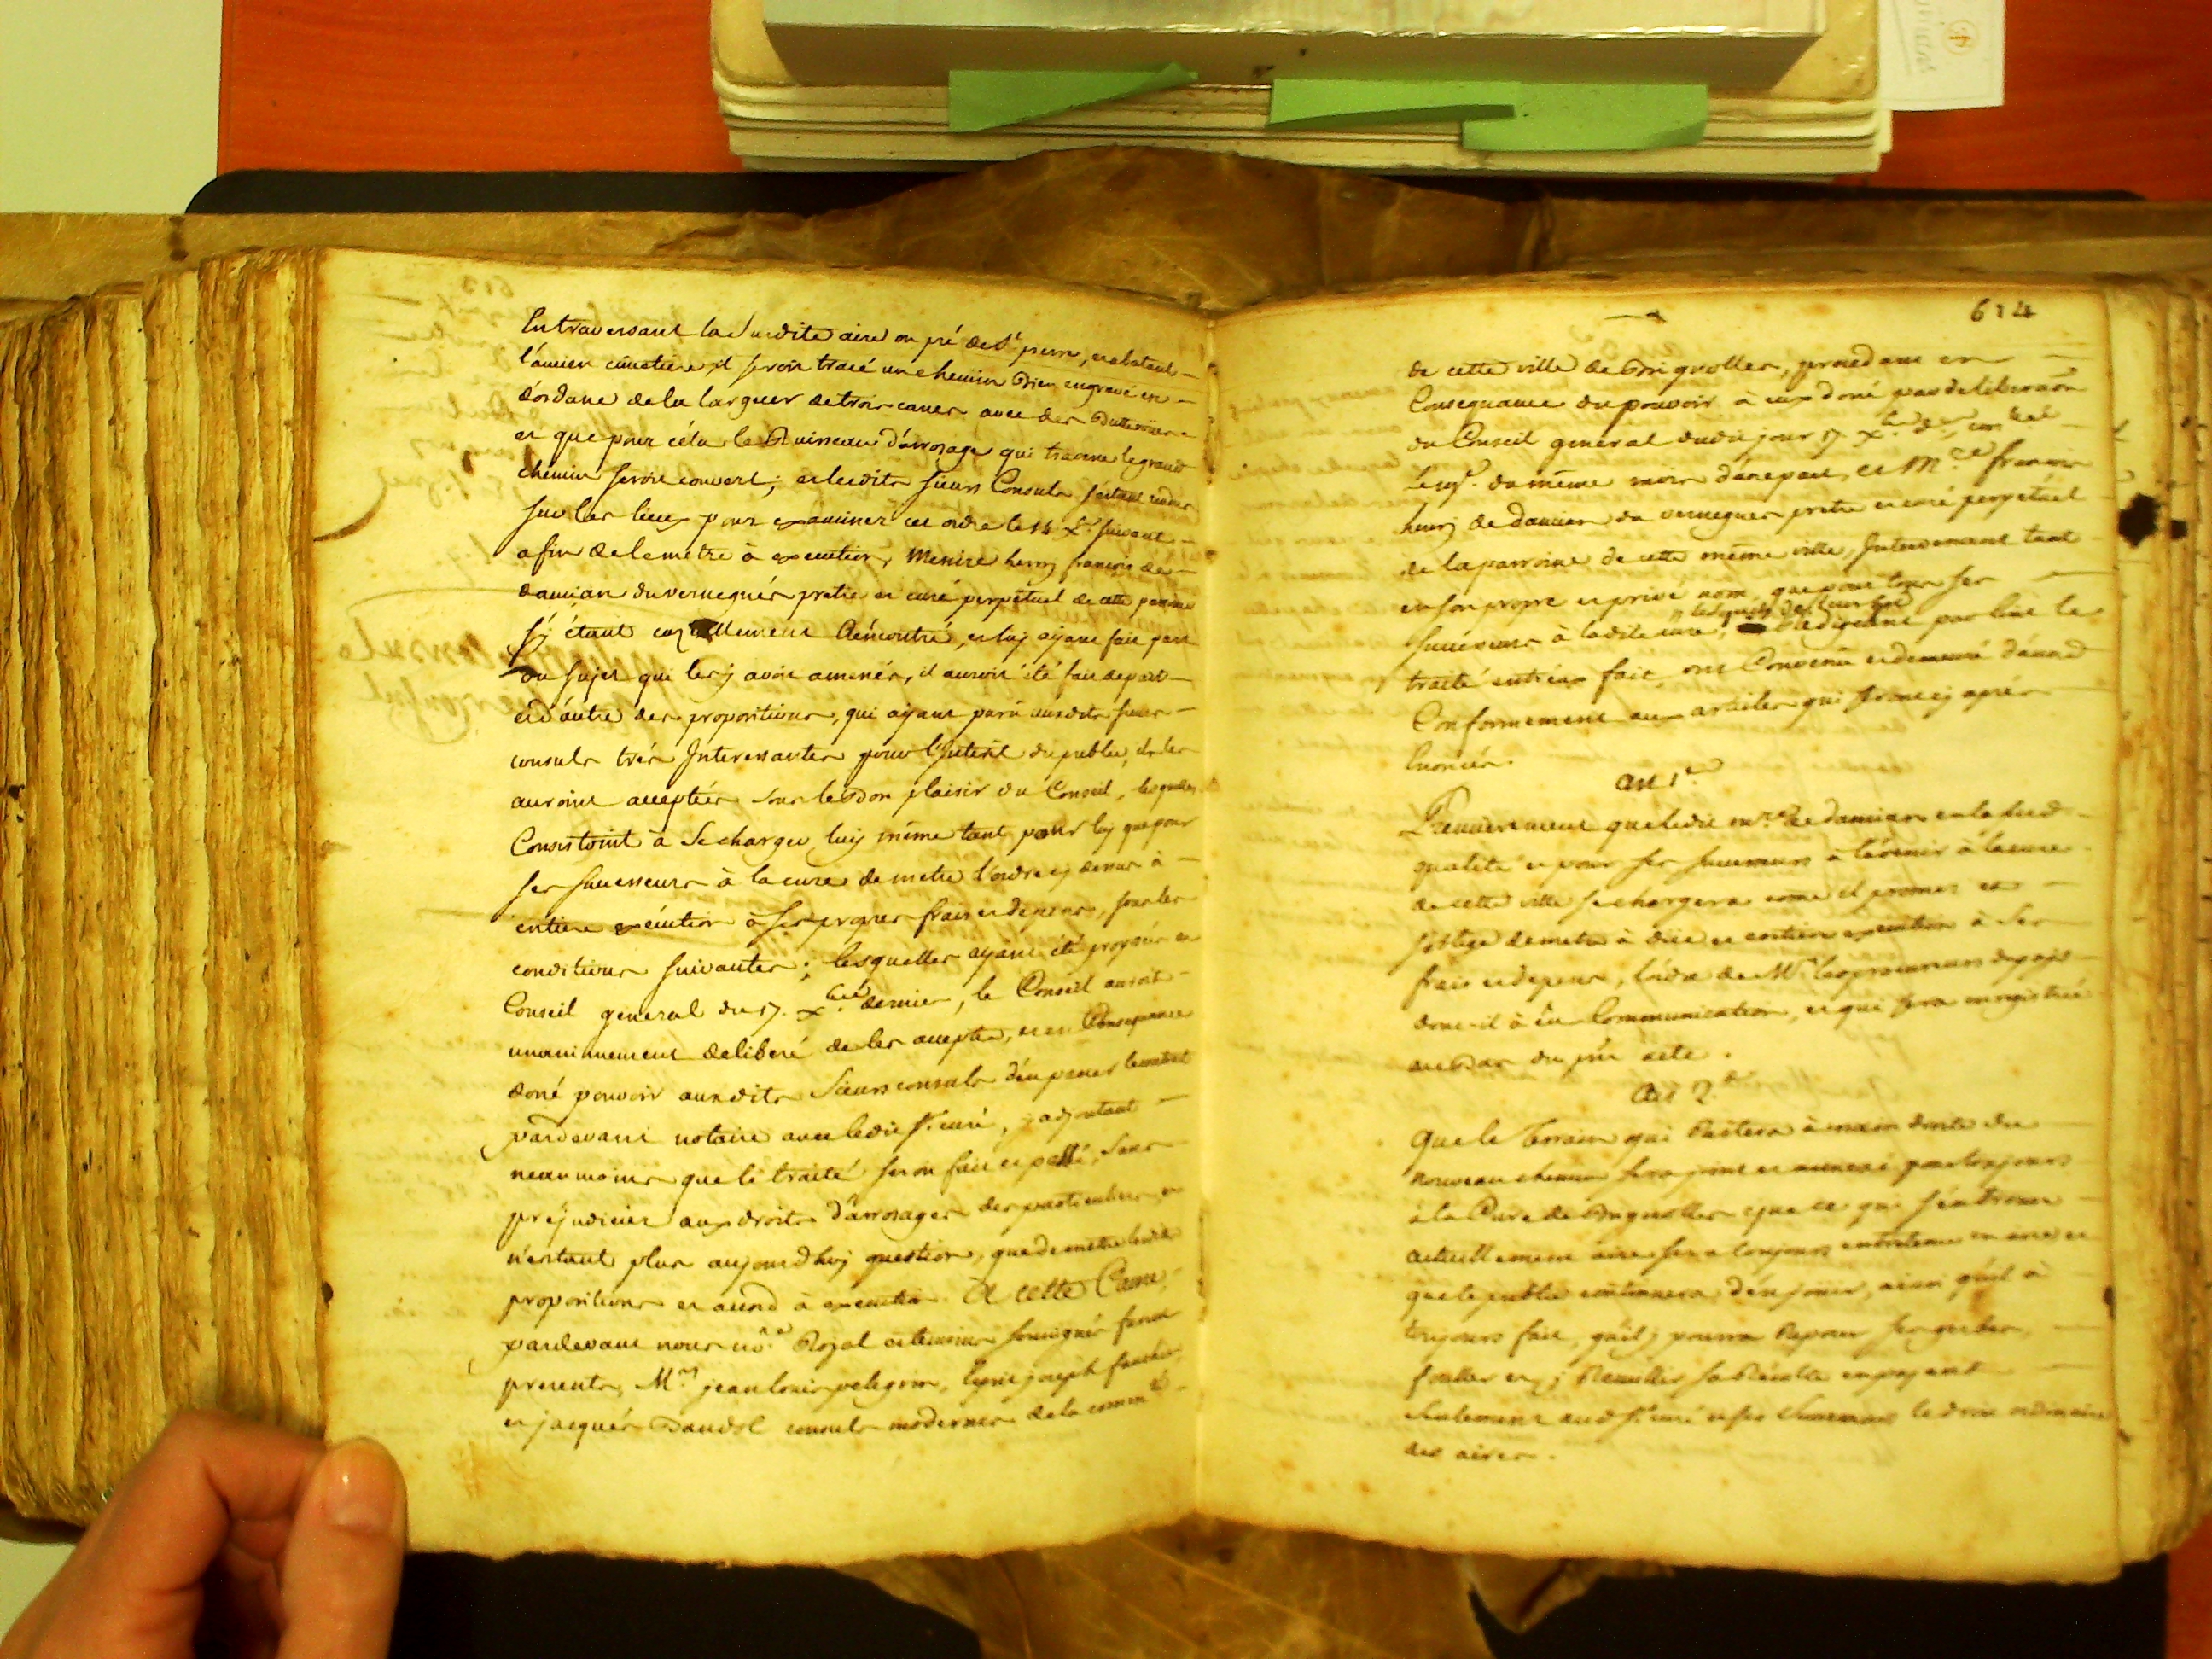 En traversant la susdite aire ou pré de St pierre, et abatant
l'ancien cimetiere, il seroit tracé un chemin bien engravé en
d'ordane de la largeur de trois canes avec des Butteroües
et que pour céla le Ruisseau d'arrosage qui traverse le grand
chemin seroit couvert; et lesdits sieurs Consuls s'estant rendus
sur les lieux pour examiner cet ordre le 14 Xre suivant
afin de le metre à execution, Messire henrij francois de
damian du vernegués pretre et curé perpetuel de cette parroisse
s'ÿ étant cazuellement Rencontré, et luÿ aÿant fait part
du sujet qui les ÿ avoit amenés, il auroit été fait de part
et d'autre des propositions, qui aÿant parû auxdits sieurs
consuls trés Interessantes pour l'Interêt du public, ils les
auroint acceptées sous le Bon plaisir du Conseil, lesquelles
Consistoint à Se charger luÿ même tant pour luÿ que pour
ses successeurs à la cure de metre l'ordre cÿ dessus à
entiere exécution à ses propres frais et depens, sous les
conditions suivantes; lesquelles aÿant été proposées au
Conseil general du 17. Xbre dernier, le Conseil auroit
unanimement deliberé de les accepter, et en Consequance
doné pouvoir auxdits Sieurs consuls d'en passer le contrat
pardevant notaire avec ledit Sr. curé, ÿ adjoutant
neanmoins que le traité seroit fait et passé, sans
préjudicier aux droits d'arrosages des particuliers, et
n'estant plus aujourdhuÿ question, que de metre lesdites
propositions et acord à execution. A cette Cause,
pardevant nous nore Roÿal et temoins soussignés furent
presents, Mrs jean louis pelegrin, joseph
et jacqués Baudol consuls modernes de la commté
614
de cette ville de Brignolles, procedant en
Consequance du pouvoir à eux doné par deliberaõn
du Conseil general dudit jour 17. Xbre
du même mois d'une part, et Mre francois
henrÿ de damian du vernegues pretre et curé perpetuel
de la parroisse de cette même ville, Intervenant tant
en son propre et privé nom, que pour tous ses
lesquels de leur gré
succésseurs à ladite cure,
traité entr'eux fait, ont Convenu et demeuré d'acord
Conformement aux articles qui seront cÿ aprés
Enoncés.
Art 1er
Premierement que ledit mre de damian en la susd
qualité et pour ses successeurs à l'avenir à la cure
de cette ville se chargera come il promet et
s'oblige de metre à düe et entiere execution à Ses
frais et depens, l'ordre de Mrs les procureurs du païs
dont-il à eu Communication, et qui sera enregistré
au Bas du pñt acte.
Art 2.e
Que le terrain qui Restera à main droite du
nouveau chemin sera joint et annexé pour toujours
à la Cure de Brignolles que ce qui s'en trouve
actuellement aire sera toujours entretenu en aire et
que le public continuera d'en jouir, ainsi qu'il à
toujours fait, qu'il ÿ pourra Reposer ses gerbes,
fouller et ÿ Recuillir sa Récolte en paÿant
seulement aud Sr curé et ses Successeurs le droit ordinaire
des aires.